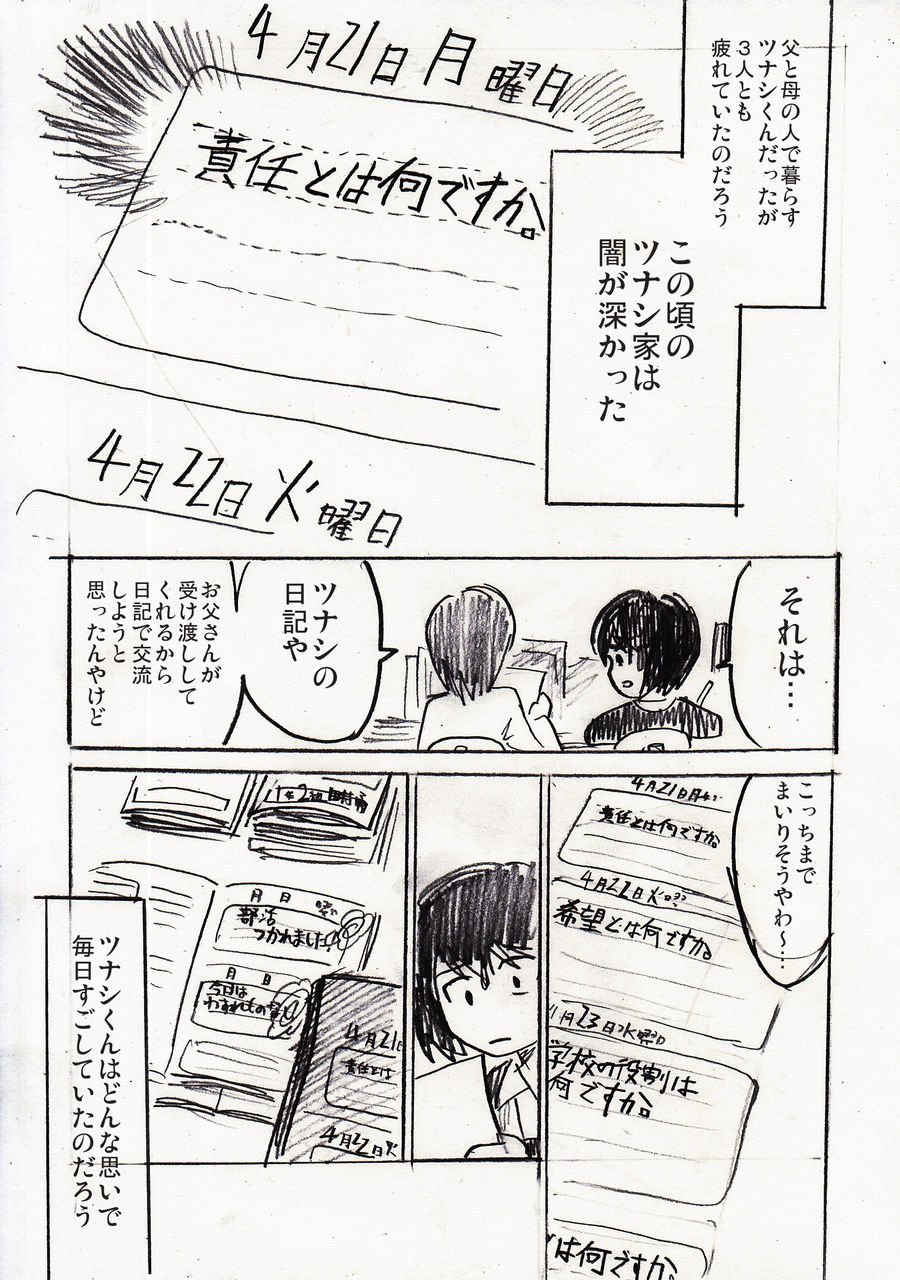 父と母の人で暮らす
ツナシくんだったが
3人とも
疲れていたのだろう
この頃の
ツナシ家は
闇が深かった
4月21日月曜日
責任とは何ですか。
4月22日火曜日
それは…
ツナシの
日記や
お父さんが
受け渡しして
くれるから
日記で交流
しようと
思ったんやけど
こっちまで
まいりそうやわ～…
4月21日月
責任とは何ですか。
4月22日火
希望とは何ですか。
月23日水曜日
学校の役割は
何ですか。
は何ですか。
1年2組
月 日
部活
つかれました。
月 日
今日は
わすれもの
4月21日
責任とは
4月22日火
ツナシくんはどんな思いで
毎日すごしていたのだろう